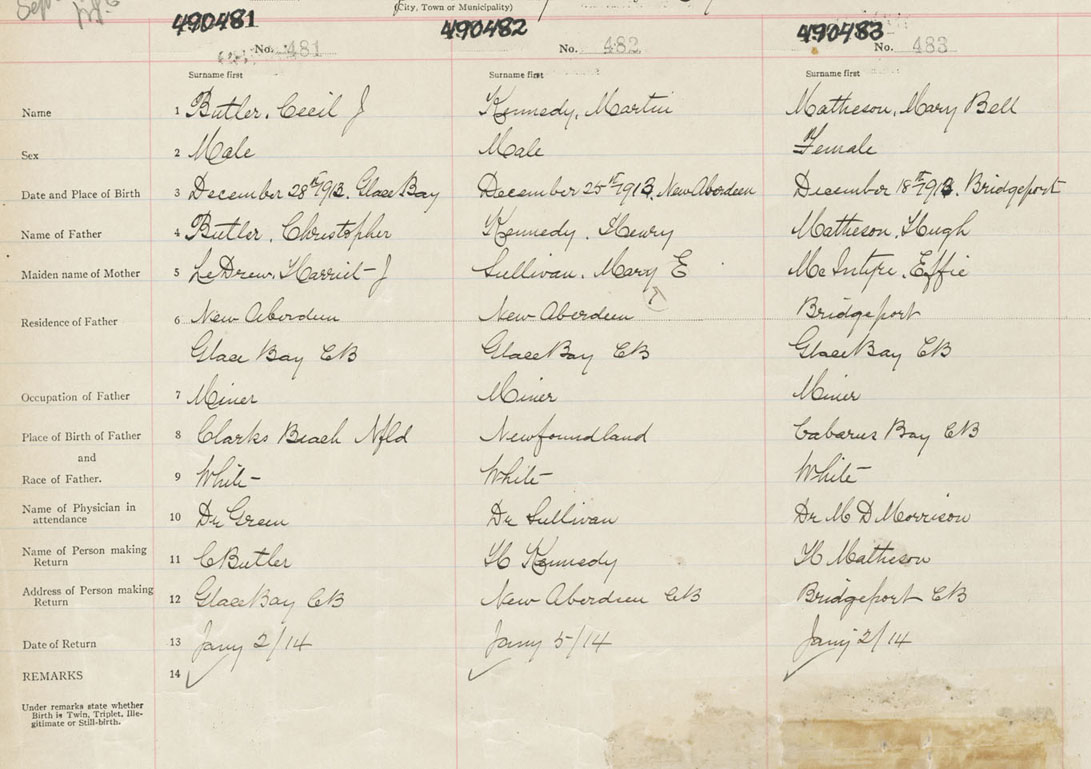 (City, Town or Municipality)
490481 490482 490483
No. 481 No. 482 No. 483
Surname first Surname first Surname first
Name 1 Butler, Cecil J Kennedy, Martin Matheson, Mary Bell
Sex 2 Male Male Female
Date and Place of Birth 3 December 28th 1913. Glace Bay December 25th 1913, New Aberdeen December 18th 1913. Bridgeport
Name of Father 4 Butler, Christopher Kennedy, Henry Matheson, Hugh
Maiden name of Mother 5 LeDrew, Harriet J Sullivan, Mary E McIntyre, Effie
Residence of Father 6 New Aberdeen New Aberdeen Bridgeport
Glace Bay CB Glace Bay CB Glace Bay CB
Occupation of Father 7 Miner Miner Miner
Place of Birth of Father 8 Clarks Beach Nfld Newfoundland Cabarus Bay CB
and
Race of Father. 9 White White White
Name of Physician in
attendance 10 Dr Green Dr Sullivan Dr M D Morrison
Name of Person making
Return 11 C Butler H Kennedy H Matheson
Address of Person making
Return 12 Glace Bay CB New Aberdeen CB Bridgeport CB
Date of Return 13 Jany 2/14 Jany 5/14 Jany 2/14
REMARKS 14
Under remarks state whether
Birth is Twin, Triplet, Ille-
gitimate or Still-birth.